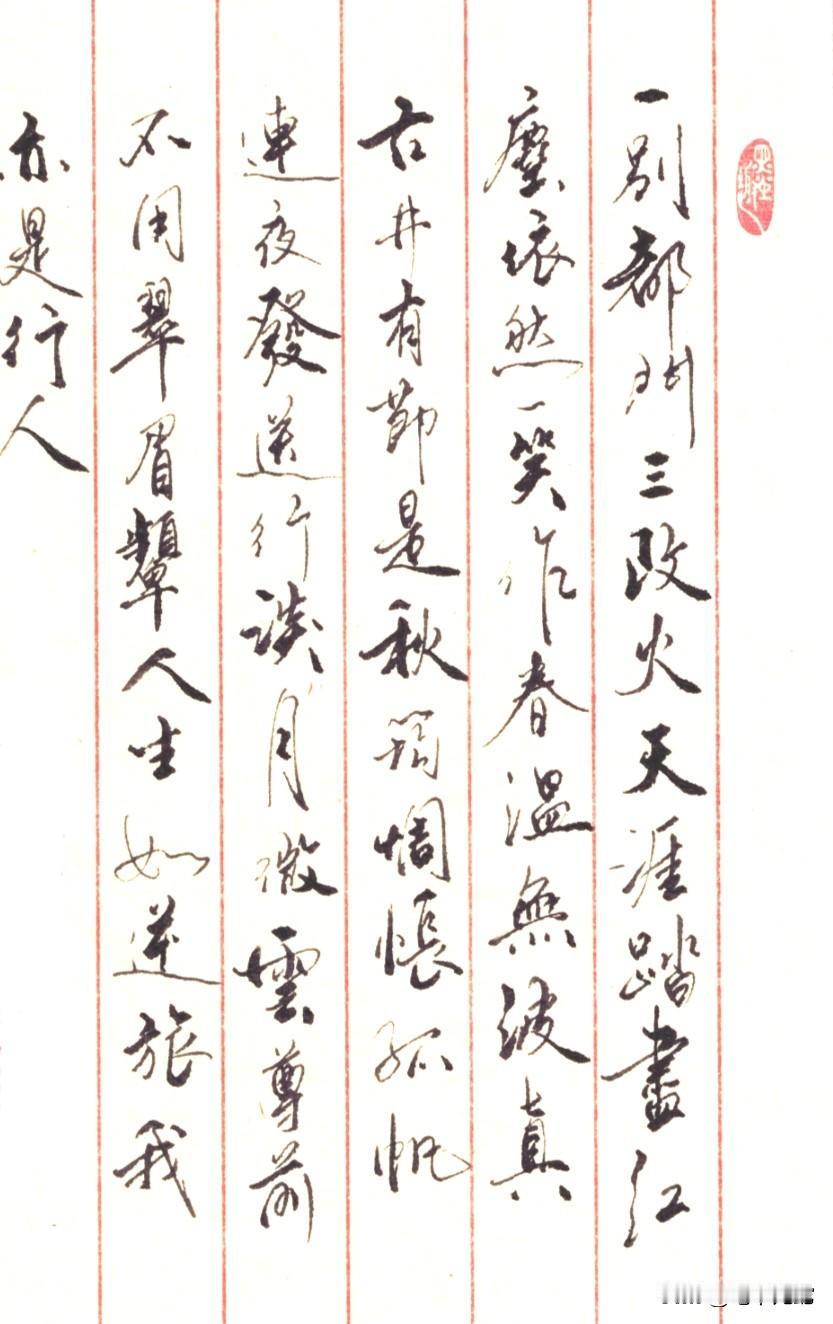 一別都門三改火天涯踏盡紅
塵依然一笑作春温無波真
古井有節是秋筠惆悵孤帆
連夜發送行淡月微雲尊前
不用翠眉顰人生如逆旅我
亦是行人